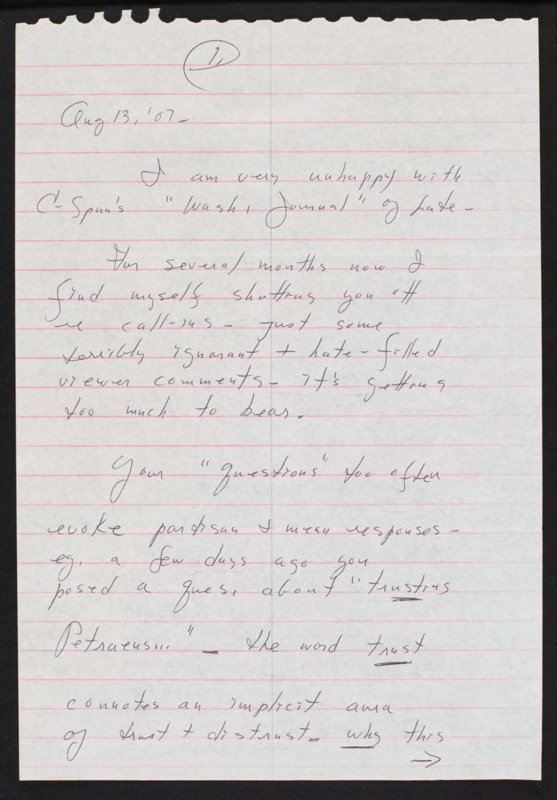 1,
Aug 13, '07-
I am very unhappy with
C-Span's "Wash, Journal" of late-
For several months now I
find myself shutting you off
re call-ins - just some
terribly ignorant + hate-filled
viewer comments - it's getting
too much to bear.
Your "questions" too often
evoke partisan & mean responses -
eg. a few days ago you
posed a ques, about "trusting
Petraeus..." - the word trust
connotes an implicit aura
of trust + distrust - why this
→